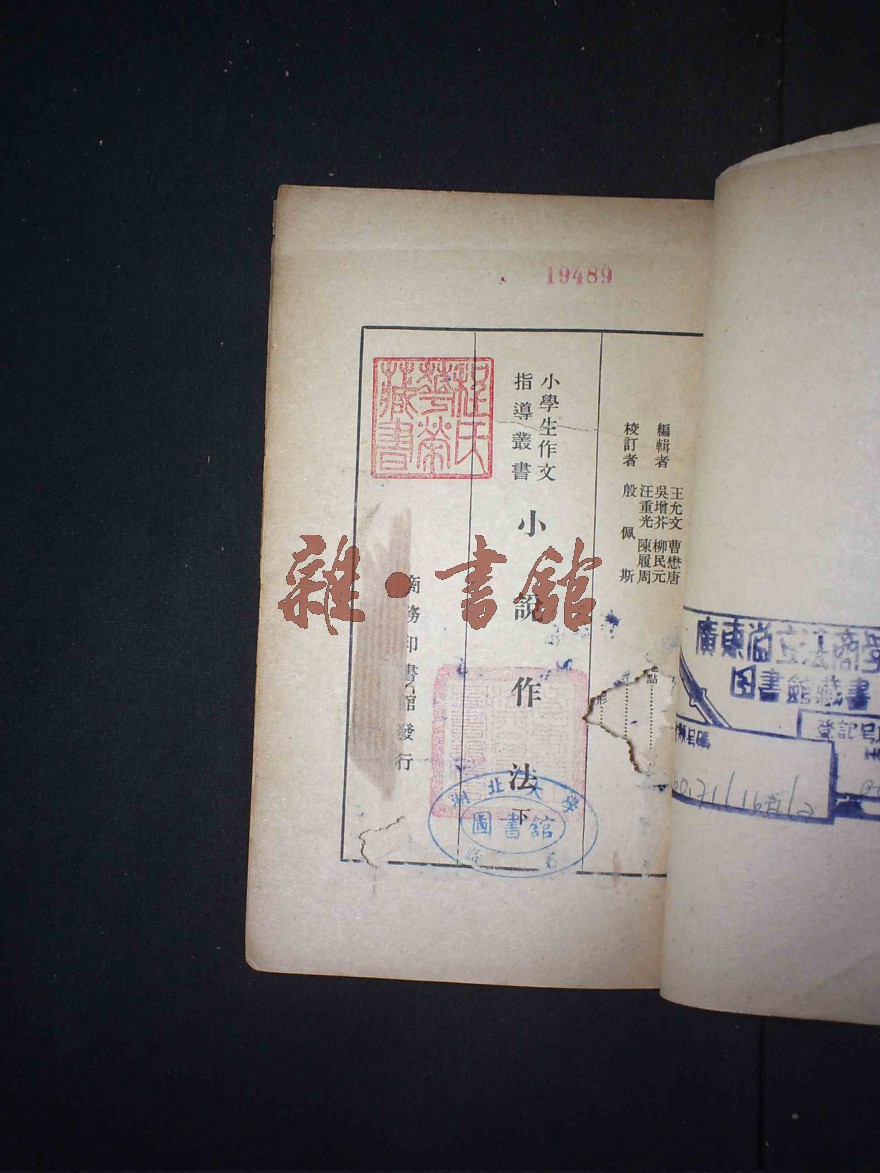 19489
編輯者
王允文 曹懋唐
吳增芥 柳民元
汪重光 陳履周
校訂者 殷佩斯
小學生作文
指導叢書
小說作法 下
商務印書館發行
程氏
藏書
雜·書館
湖北大學
圖書館
圖書館藏書
登記